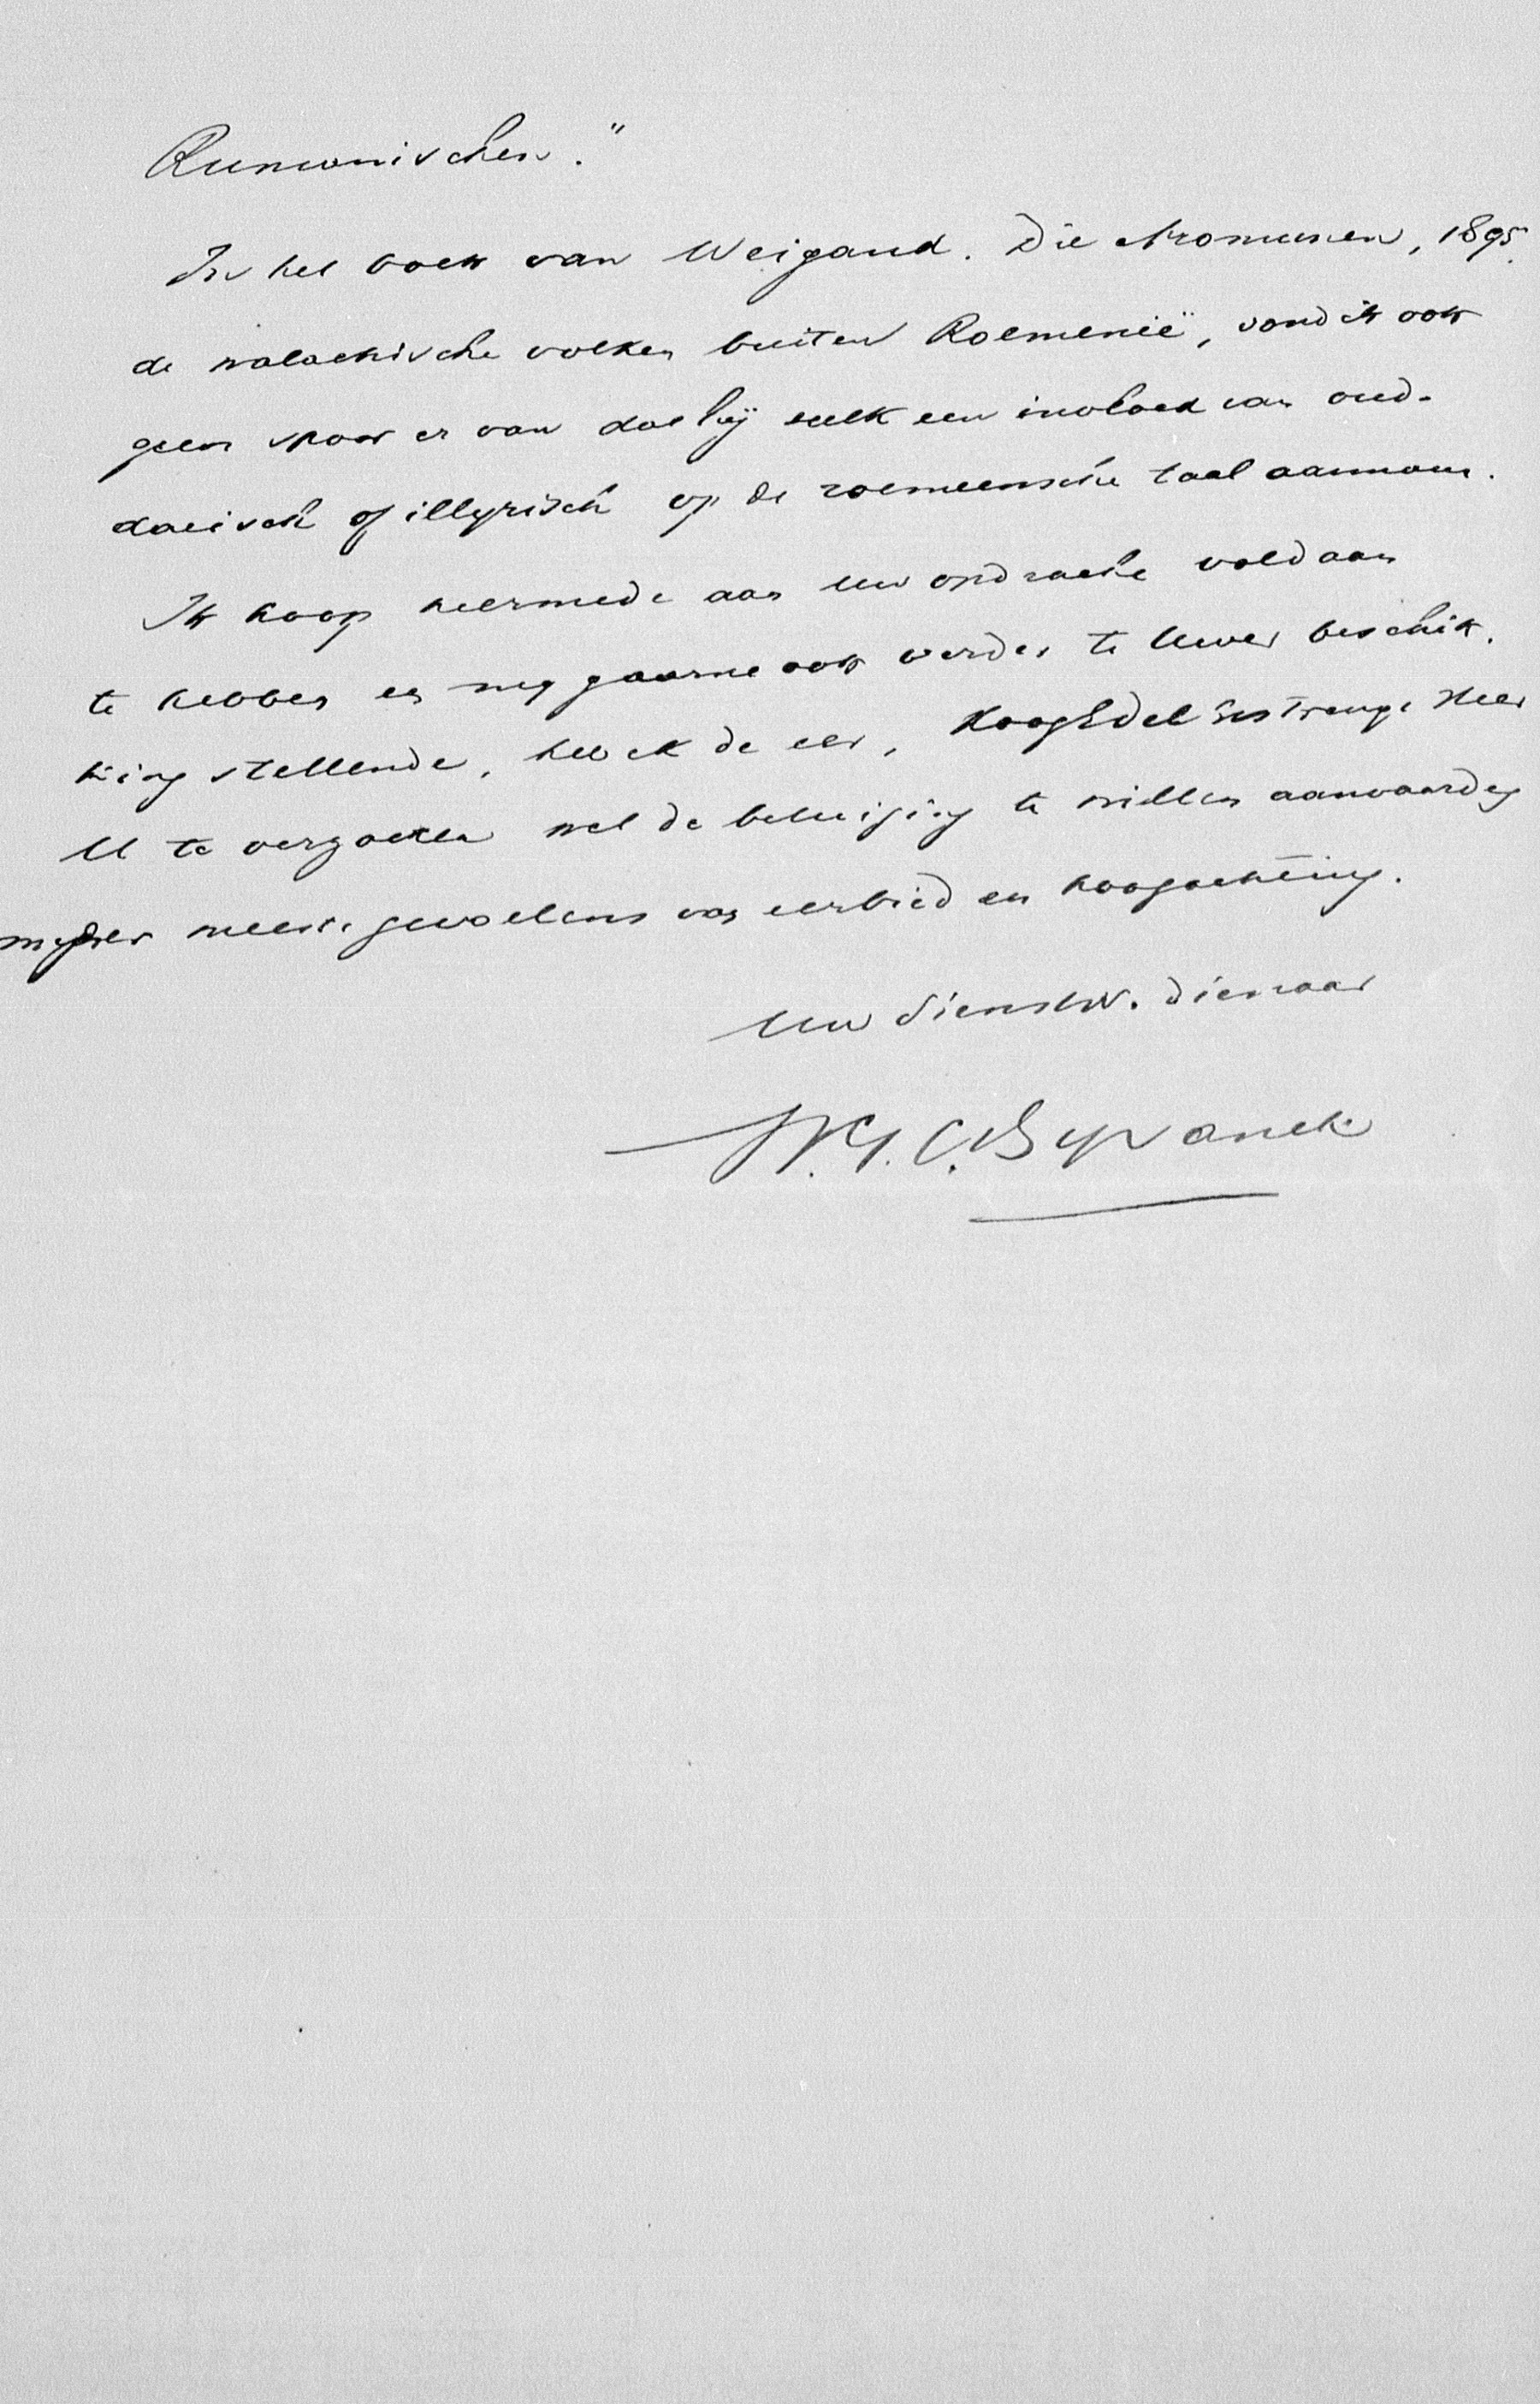 Rumanischen."
In het boek van Weigand. Die Aromunen, 1895.
de walachische volken buiten Roemenië, vond ik ook
geen spoor er van dat hij zulk een invloed van oud-
dacisch of illyrisch op de roemeensche taal aannam.
Ik hoop hiermede aan Uw opdracht voldaan
te hebben en mij gaarne ook verder te Uwer beschik.
king stellende, heb ik de eer, HoogEdelGestrenge Heer
U te verzoeken wel de betuiging te willen aanvaarden
mijner meeste gevoelens van eerbied en hoogachting.
Uw dienstw. dienaar
W.G.C. Byvanck